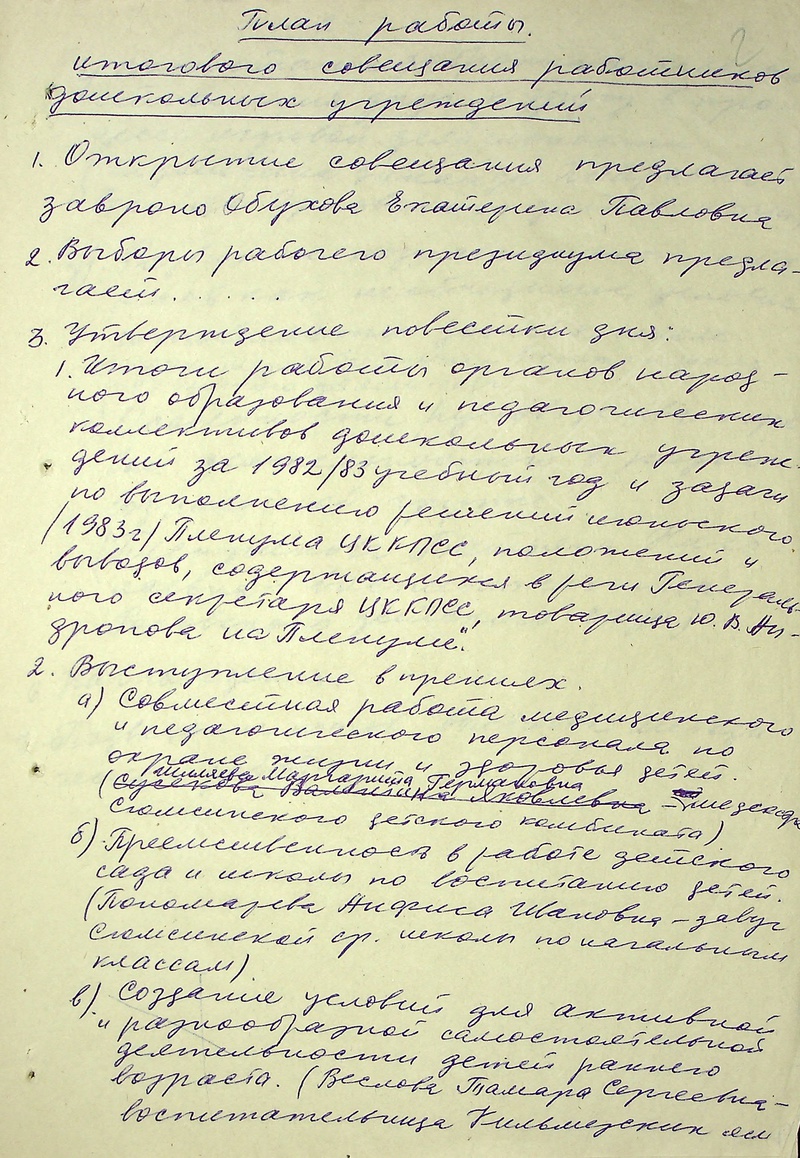 План работы. 2
итогового совещания работников
дошкольных учреждений
1. Открытие совещания предлагает
заврoно Обухова Екатерина Павловна
2. Выборы рабочего президиума предла-
гает . . . . .
3. Утверждение повестки дня:
1. Итоги работы органов народ-
ного образования и педагогических
коллективов дошкольных учреж-
дений за 1982/83 учебный год и задачи
по выполнению решений июньского
/1983г/ Пленума ЦК КПСС, положений и
выводов, содержащихся в речи Генераль-
ного секретаря ЦК КПСС, товарища Ю. В. Ан-
дропова на Пленуме".
2. Выступление в прениях.
а) Совместная работа медицинского
и педагогического персонала по
охране жизни и здоровья детей.
Шиляева Маргарита Германовна
(Сусекова Валентина Яковлевна – медсестра
Сюмсинского детского комбината)
б) Преемственность в работе детского
сада и школы по воспитанию детей.
(Пономарева Анфиса Ивановна – завуч
Сюмсинской ср. школы по начальным
классам)
в) Создание условий для активной
и разнообразной самостоятельной
деятельности детей раннего
возраста. (Веслова Тамара Сергеевна –
воспитательница Кильмезских ясл